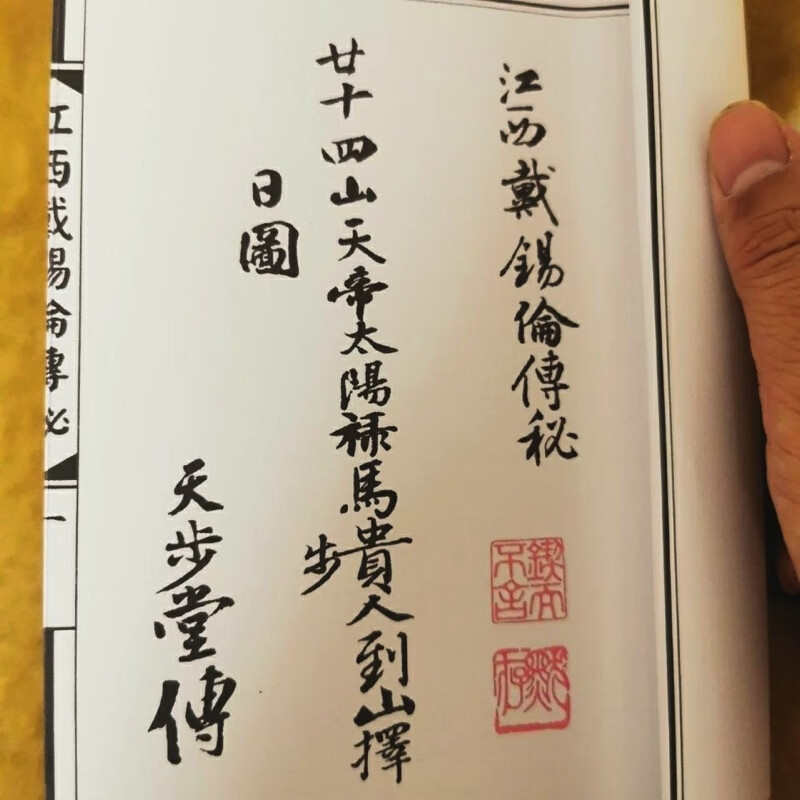 江西戴錫倫傳秘
廿十四山天帝太陽祿馬貴人到山擇
步
日圖
天步堂傳
鍥而不舍
江西戴錫倫傳秘
一